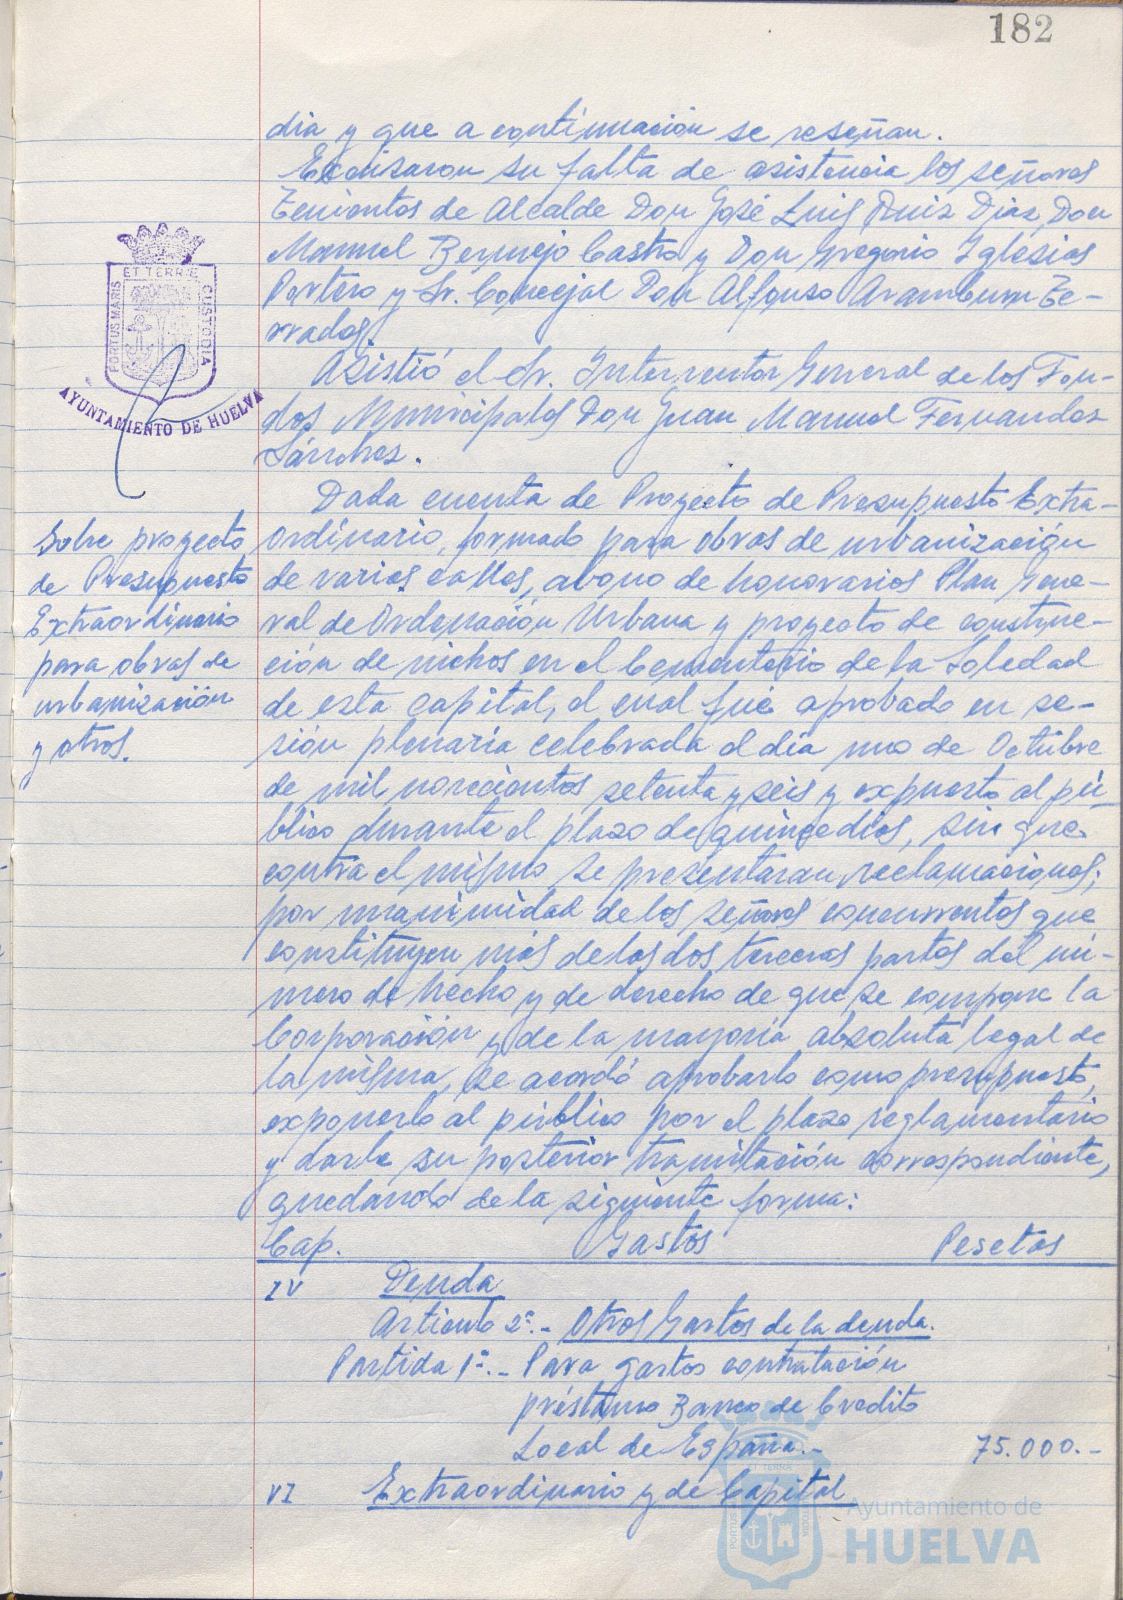 182
dia y que a continuación se reseñan.
Excusaron su falta de asistencia los señores
Tenientes de Alcalde Don José Luis Ruiz Diaz, Don
Manuel Bermejo Castro y Don Gregorio Iglesias
Portero y Sr. Concejal Don Alfonso Aramburu Te-
rrados.
Asistió el Sr. Interventor General de los Fon-
dos Municipales Don Juan Manuel Fernandez
Sánchez.
Sobre proyecto
de Presupuesto
Extraordinario
para obras de
urbanización
y otros.
Dada cuenta de Proyecto de Presupuesto Extra-
ordinario, formado para obras de urbanización
de varias calles, abono de honorarios Plan Gene-
ral de Ordenación Urbana y proyecto de construc-
ción de nichos en el Cementerio de la Soledad
de esta capital, el cual fué aprobado en se-
sión plenaria celebrada el dia uno de Octubre
de mil novecientos setenta y seis y expuesto al pú-
blico durante el plazo de quince dias, sin que
contra el mismo se presentaran reclamaciones;
por unanimidad de los señores concurrentes que
constituyen más de las dos terceras partes del nú-
mero de hecho y de derecho de que se compone la
Corporación y de la mayoria absoluta legal de
la misma, se acordó aprobarlo como presupuesto,
exponerlo al público por el plazo reglamentario
y darle su posterior tramitación correspondiente,
quedando de la siguiente forma:
Cap. Gastos Pesetas
IV Deuda
Articulo 2º.- Otros Gastos de la deuda.
Partida 1ª.- Para gastos contratación
préstamo Banco de Crédito
Local de España.- 75.000.-
VI Extraordinario y de Capital
PORTUS MARIS ET TERRÆ CUSTODIA
AYUNTAMIENTO DE HUELVA
Ayuntamiento de
HUELVA